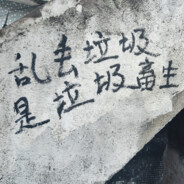 乱丢垃圾
是垃圾畜生